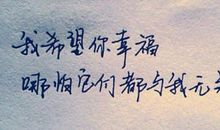 我希望你幸福
哪怕它们都与我无